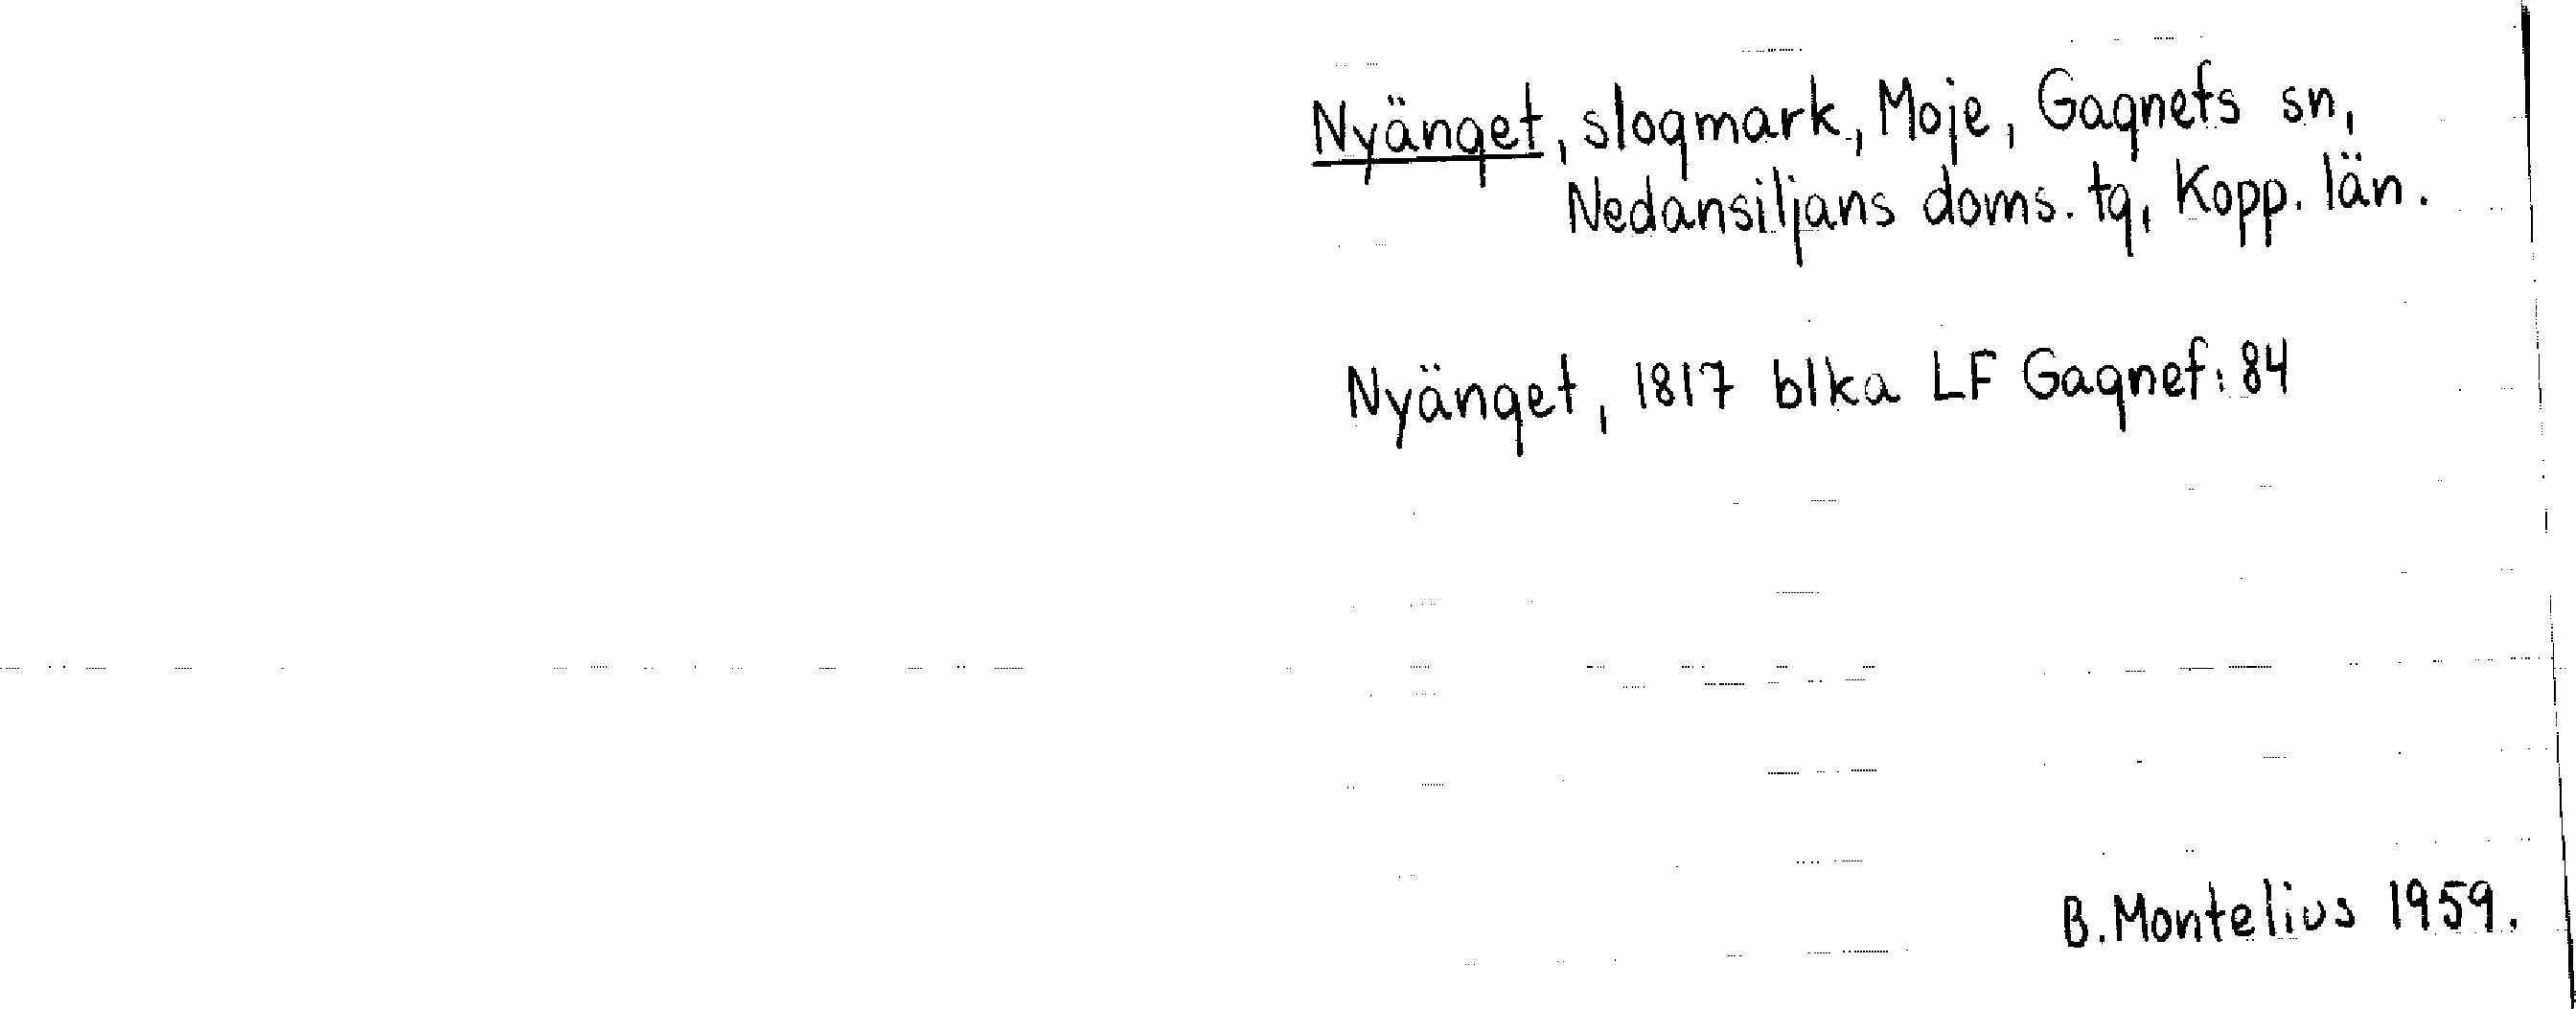 Nyänget, slogmark, Moje, Gagnefs sn,
Nedansiljans doms. tg, Kopp. län.
Nyänget, 1817 blka LF Gagnef: 84
B. Montelius 1959.